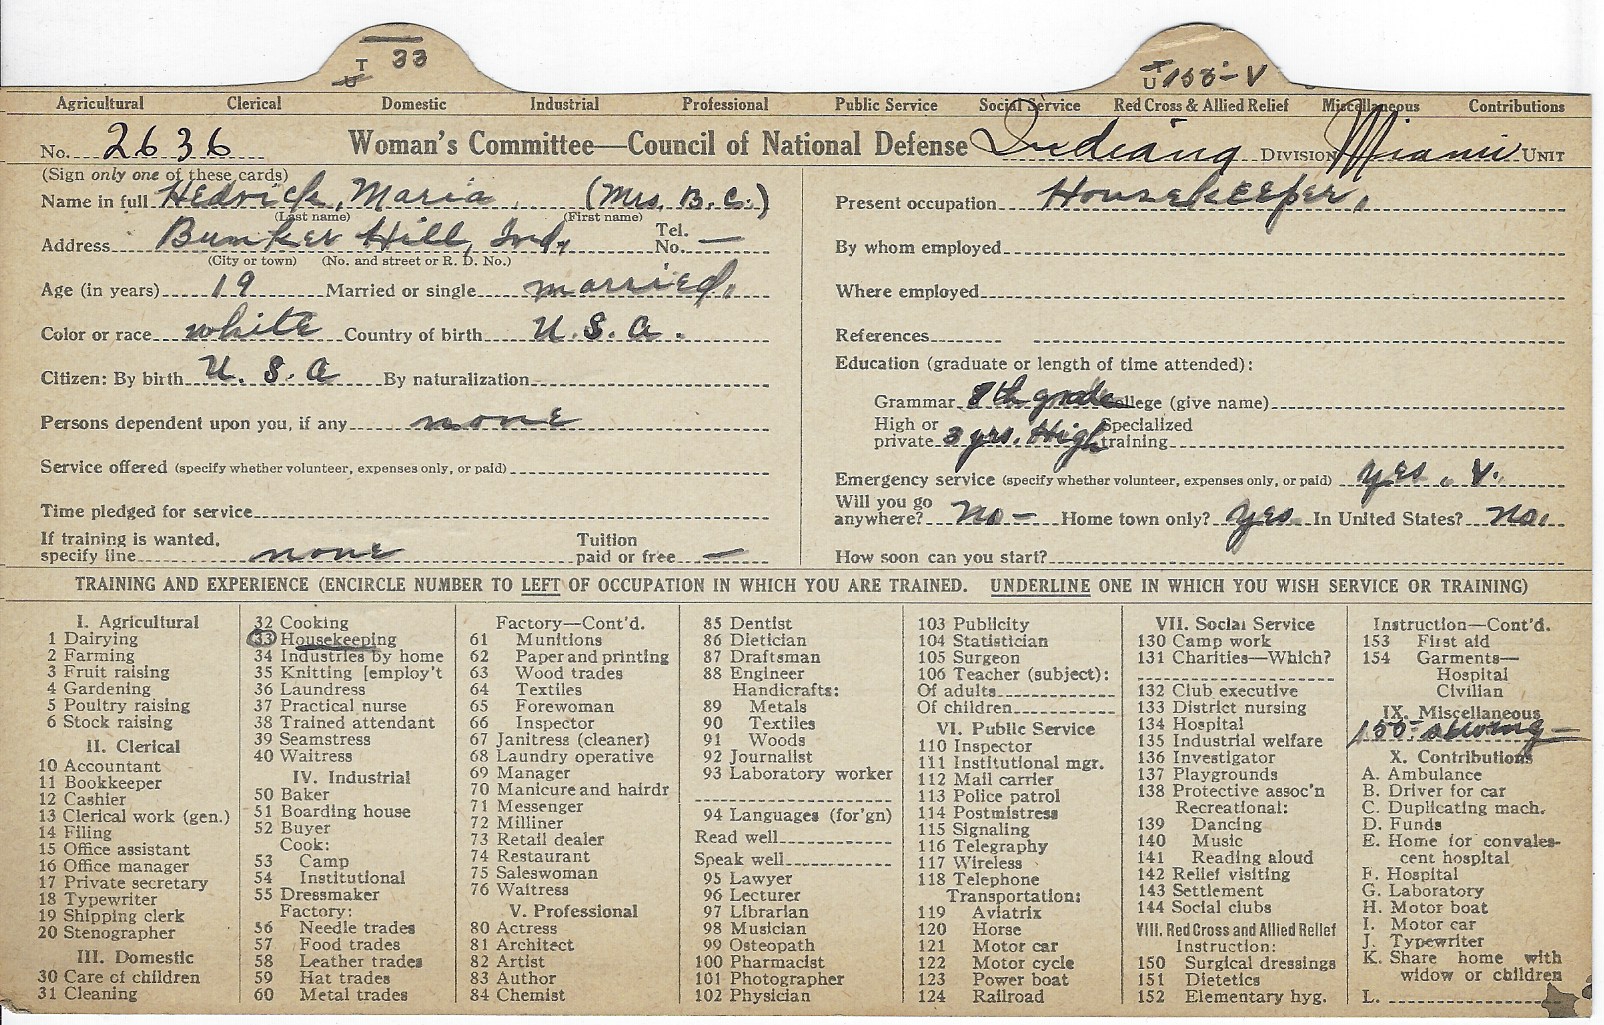 T
U 33
T
U 155-V
Agricultural Clerical Domestic Industrial Professional Public Service Social Service Red Cross & Allied Relief Miscellaneous Contributions
No. 2636 Woman's Committee—Council of National Defense Indiana DIVISION Miami UNIT
(Sign only one of these cards)
Name in full Hedrick, Maria (Mrs. B. C.)
(Last name) (First name)
Address Bunker Hill, Ind. Tel. No. —
(City or town) (No. and street or R. D. No.)
Age (in years) 19 Married or single married.
Color or race white Country of birth U. S. a.
Citizen: By birth U. S. a By naturalization
Persons dependent upon you, if any none
Service offered (specify whether volunteer, expenses only, or paid)
Time pledged for service
If training is wanted, specify line none Tuition paid or free —
Present occupation Housekeeper.
By whom employed
Where employed
References
Education (graduate or length of time attended):
Grammar 8th grade College (give name)
High or private 3 yrs. High Specialized training
Emergency service (specify whether volunteer, expenses only, or paid) yes. V.
Will you go anywhere? no — Home town only? yes In United States? no.
How soon can you start?
TRAINING AND EXPERIENCE (ENCIRCLE NUMBER TO LEFT OF OCCUPATION IN WHICH YOU ARE TRAINED. UNDERLINE ONE IN WHICH YOU WISH SERVICE OR TRAINING)
I. Agricultural
1 Dairying
2 Farming
3 Fruit raising
4 Gardening
5 Poultry raising
6 Stock raising
II. Clerical
10 Accountant
11 Bookkeeper
12 Cashier
13 Clerical work (gen.)
14 Filing
15 Office assistant
16 Office manager
17 Private secretary
18 Typewriter
19 Shipping clerk
20 Stenographer
III. Domestic
30 Care of children
31 Cleaning
32 Cooking
33 Housekeeping
34 Industries by home
35 Knitting [employ't
36 Laundress
37 Practical nurse
38 Trained attendant
39 Seamstress
40 Waitress
IV. Industrial
50 Baker
51 Boarding house
52 Buyer
Cook:
53 Camp
54 Institutional
55 Dressmaker
Factory:
56 Needle trades
57 Food trades
58 Leather trades
59 Hat trades
60 Metal trades
Factory—Cont'd.
61 Munitions
62 Paper and printing
63 Wood trades
64 Textiles
65 Forewoman
66 Inspector
67 Janitress (cleaner)
68 Laundry operative
69 Manager
70 Manicure and hairdr
71 Messenger
72 Milliner
73 Retail dealer
74 Restaurant
75 Saleswoman
76 Waitress
V. Professional
80 Actress
81 Architect
82 Artist
83 Author
84 Chemist
85 Dentist
86 Dietician
87 Draftsman
88 Engineer
Handicrafts:
89 Metals
90 Textiles
91 Woods
92 Journalist
93 Laboratory worker
94 Languages (for'gn)
Read well
Speak well
95 Lawyer
96 Lecturer
97 Librarian
98 Musician
99 Osteopath
100 Pharmacist
101 Photographer
102 Physician
103 Publicity
104 Statistician
105 Surgeon
106 Teacher (subject):
Of adults
Of children
VI. Public Service
110 Inspector
111 Institutional mgr.
112 Mail carrier
113 Police patrol
114 Postmistress
115 Signaling
116 Telegraphy
117 Wireless
118 Telephone
Transportation:
119 Aviatrix
120 Horse
121 Motor car
122 Motor cycle
123 Power boat
124 Railroad
VII. Social Service
130 Camp work
131 Charities—Which?
132 Club executive
133 District nursing
134 Hospital
135 Industrial welfare
136 Investigator
137 Playgrounds
138 Protective assoc'n
Recreational:
139 Dancing
140 Music
141 Reading aloud
142 Relief visiting
143 Settlement
144 Social clubs
VIII. Red Cross and Allied Relief
Instruction:
150 Surgical dressings
151 Dietetics
152 Elementary hyg.
Instruction—Cont'd.
153 First aid
154 Garments—
Hospital
Civilian
IX. Miscellaneous
155 - sewing —
X. Contributions
A. Ambulance
B. Driver for car
C. Duplicating mach.
D. Funds
E. Home for convales-
cent hospital
F. Hospital
G. Laboratory
H. Motor boat
I. Motor car
J. Typewriter
K. Share home with
widow or children
L.